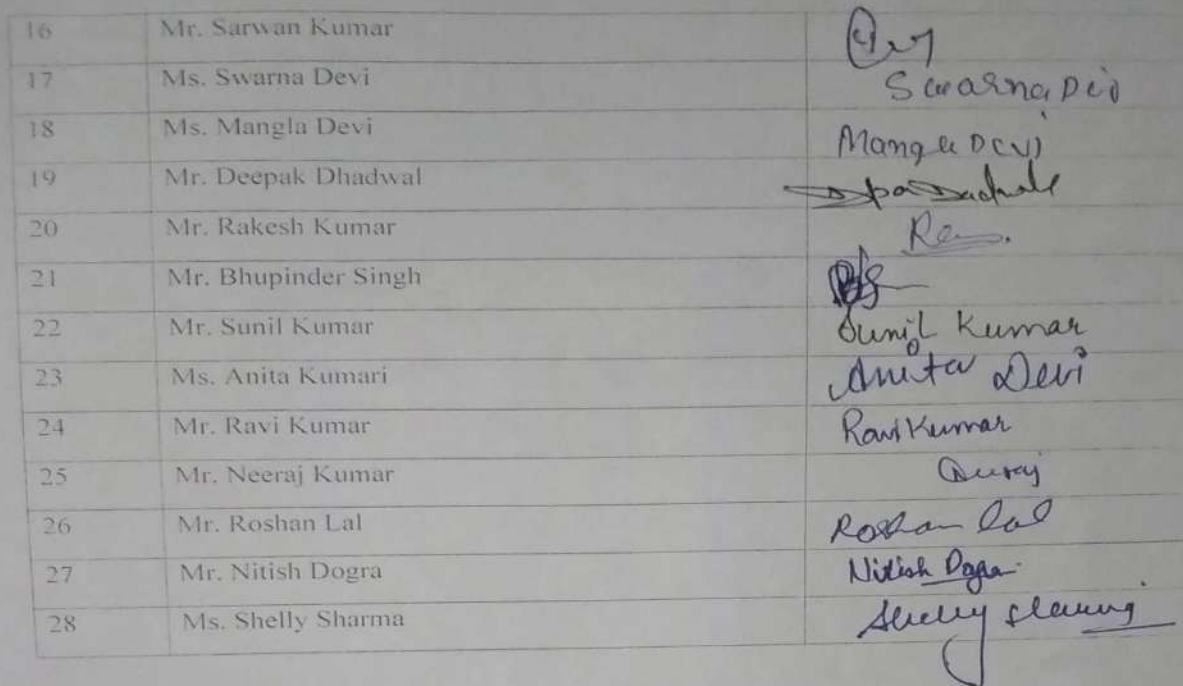 16 Mr. Sarwan Kumar
17 Ms. Swarna Devi Swarna Devi
18 Ms. Mangla Devi Mangla Devi
19 Mr. Deepak Dhadwal
20 Mr. Rakesh Kumar
21 Mr. Bhupinder Singh
22 Mr. Sunil Kumar Sunil Kumar
23 Ms. Anita Kumari Anita Devi
24 Mr. Ravi Kumar Ravi Kumar
25 Mr. Neeraj Kumar
26 Mr. Roshan Lal Roshan Lal
27 Mr. Nitish Dogra Nitish Dogra
28 Ms. Shelly Sharma Shelly